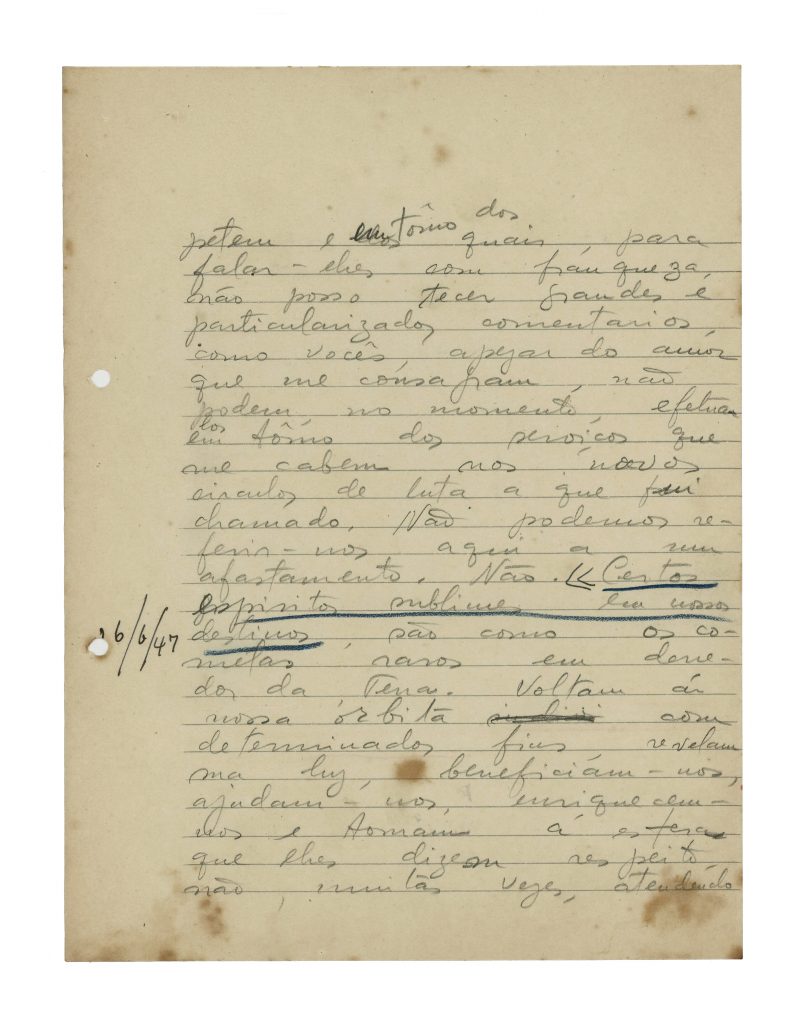 petem e em tôrno dos quais, para
falar-lhes com franqueza,
não posso tecer grandes e
particularizados comentarios,
como vocês, apezar do amôr
que me consagram, não
podem, no momento, efetual-
los em tôrno dos serviços que
me cabem nos novos
circulos de luta a que fui
chamado. Não podemos re-
ferir-nos aqui a um
afastamento. Não. << Certos
espiritos sublimes em nossos
16/6/47
destinos, são como os co-
metas raros em derre-
dor da Terra. Voltam á
nossa órbita com
determinados fins, revelam
uma luz, beneficiám-nos,
ajudam-nos, enriquecem-
nos e tornam á esfera
que lhes dizem respeito,
não, muitas vezes, atendendo